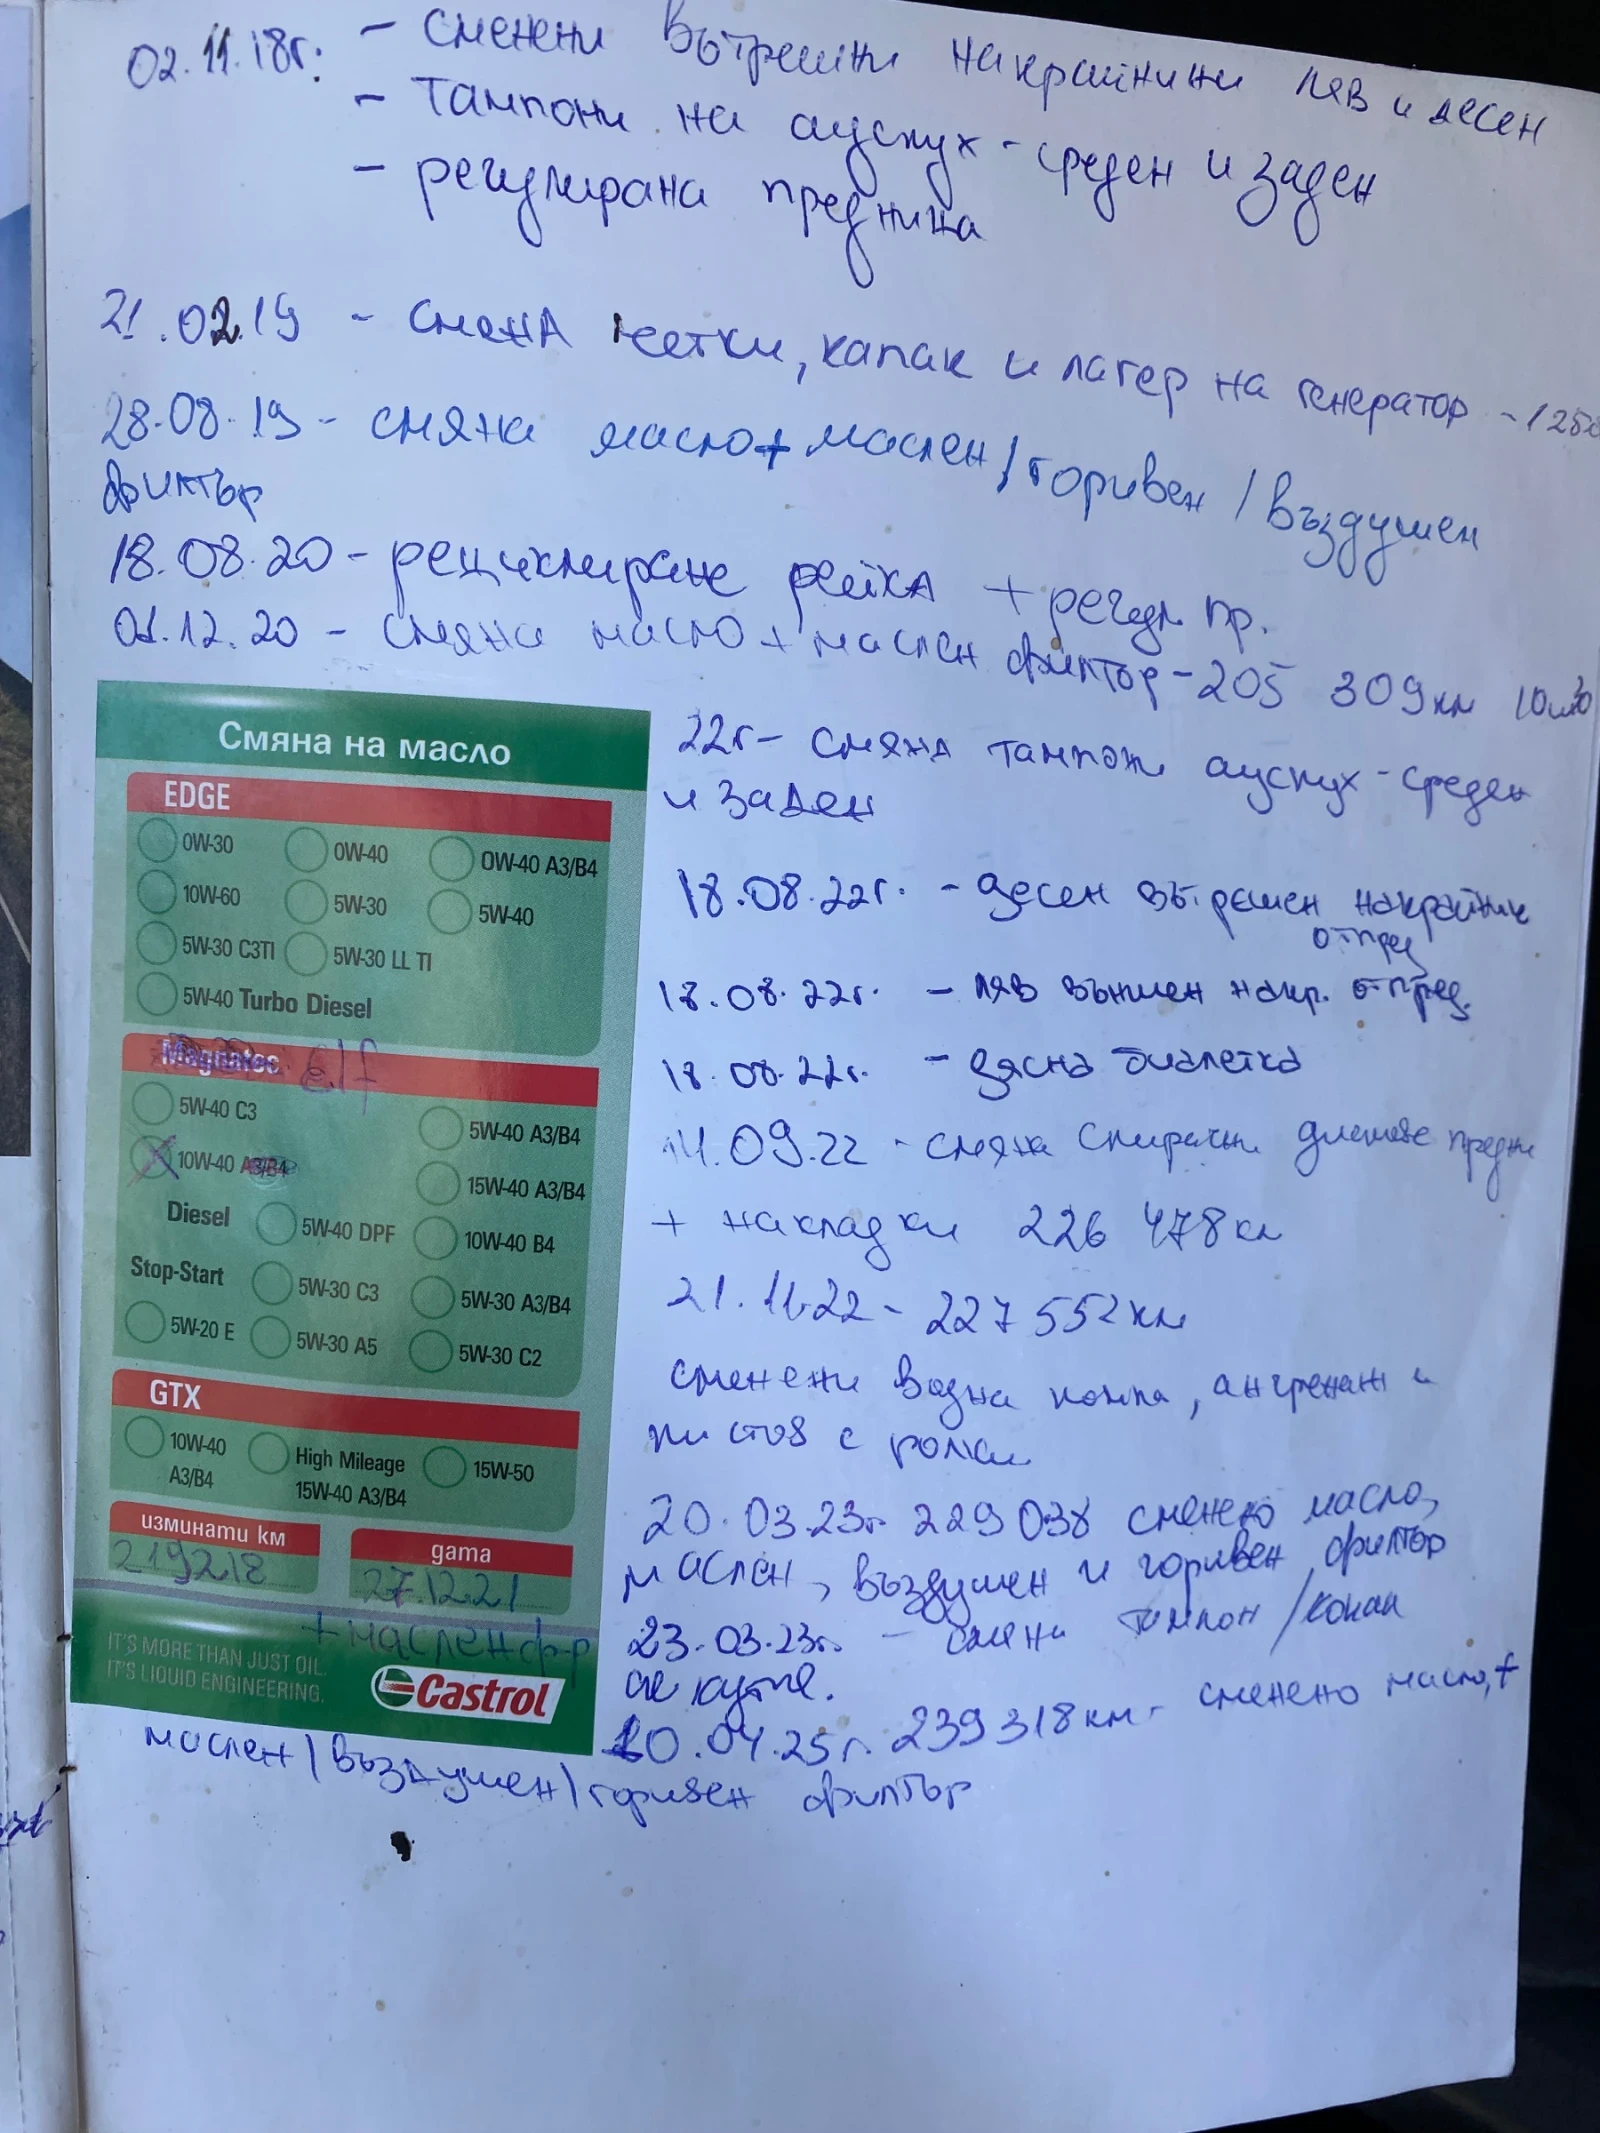 02.11.18г. - сменени вътрешни накрайници ляв и десен
- тампони на ауспух - среден и заден
- регулирана предница
21.02.19 - смена четки, капак и лагер на генератор - 125
28.08.19 - смяна масло + маслен / горивен / въздушен
филтър
18.08.20 - рециклиране рейка + регул. пр.
01.12.20 - смяна масло + маслен филтър - 205 309 км
22г - смяна тампон ауспух - среден
и заден
18.08.22г. - десен вътрешен накрайник
отпред
18.08.22г. - ляв външен накр. отпред.
18.08.22г. - дясна биалетка
14.09.22 - смяна спирачни дискове предни
+ накладки 226 478 км
21.11.22 - 227 552 км
сменени водна помпа, ангренаж и
пистов с ролки
20.03.23г. 229 038 сменено масло,
маслен, въздушен и горивен филтър
23.03.23г. - смени тампон /
20.04.25г. 239 318 км - сменено масло, +
маслен / въздушен / горивен филтър
Смяна на масло
EDGE
0W-30 0W-40 0W-40 A3/B4
10W-60 5W-30 5W-40
5W-30 C3TI 5W-30 LL TI
5W-40 Turbo Diesel
Magnatec Elf
5W-40 C3 5W-40 A3/B4
10W-40 A3/B4 15W-40 A3/B4
Diesel 5W-40 DPF 10W-40 B4
Stop-Start 5W-30 C3 5W-30 A3/B4
5W-20 E 5W-30 A5 5W-30 C2
GTX
10W-40 High Mileage 15W-50
A3/B4 15W-40 A3/B4
изминати км дата
219218 27.12.21
+ маслен ф-р
IT'S MORE THAN JUST OIL.
IT'S LIQUID ENGINEERING.
Castrol